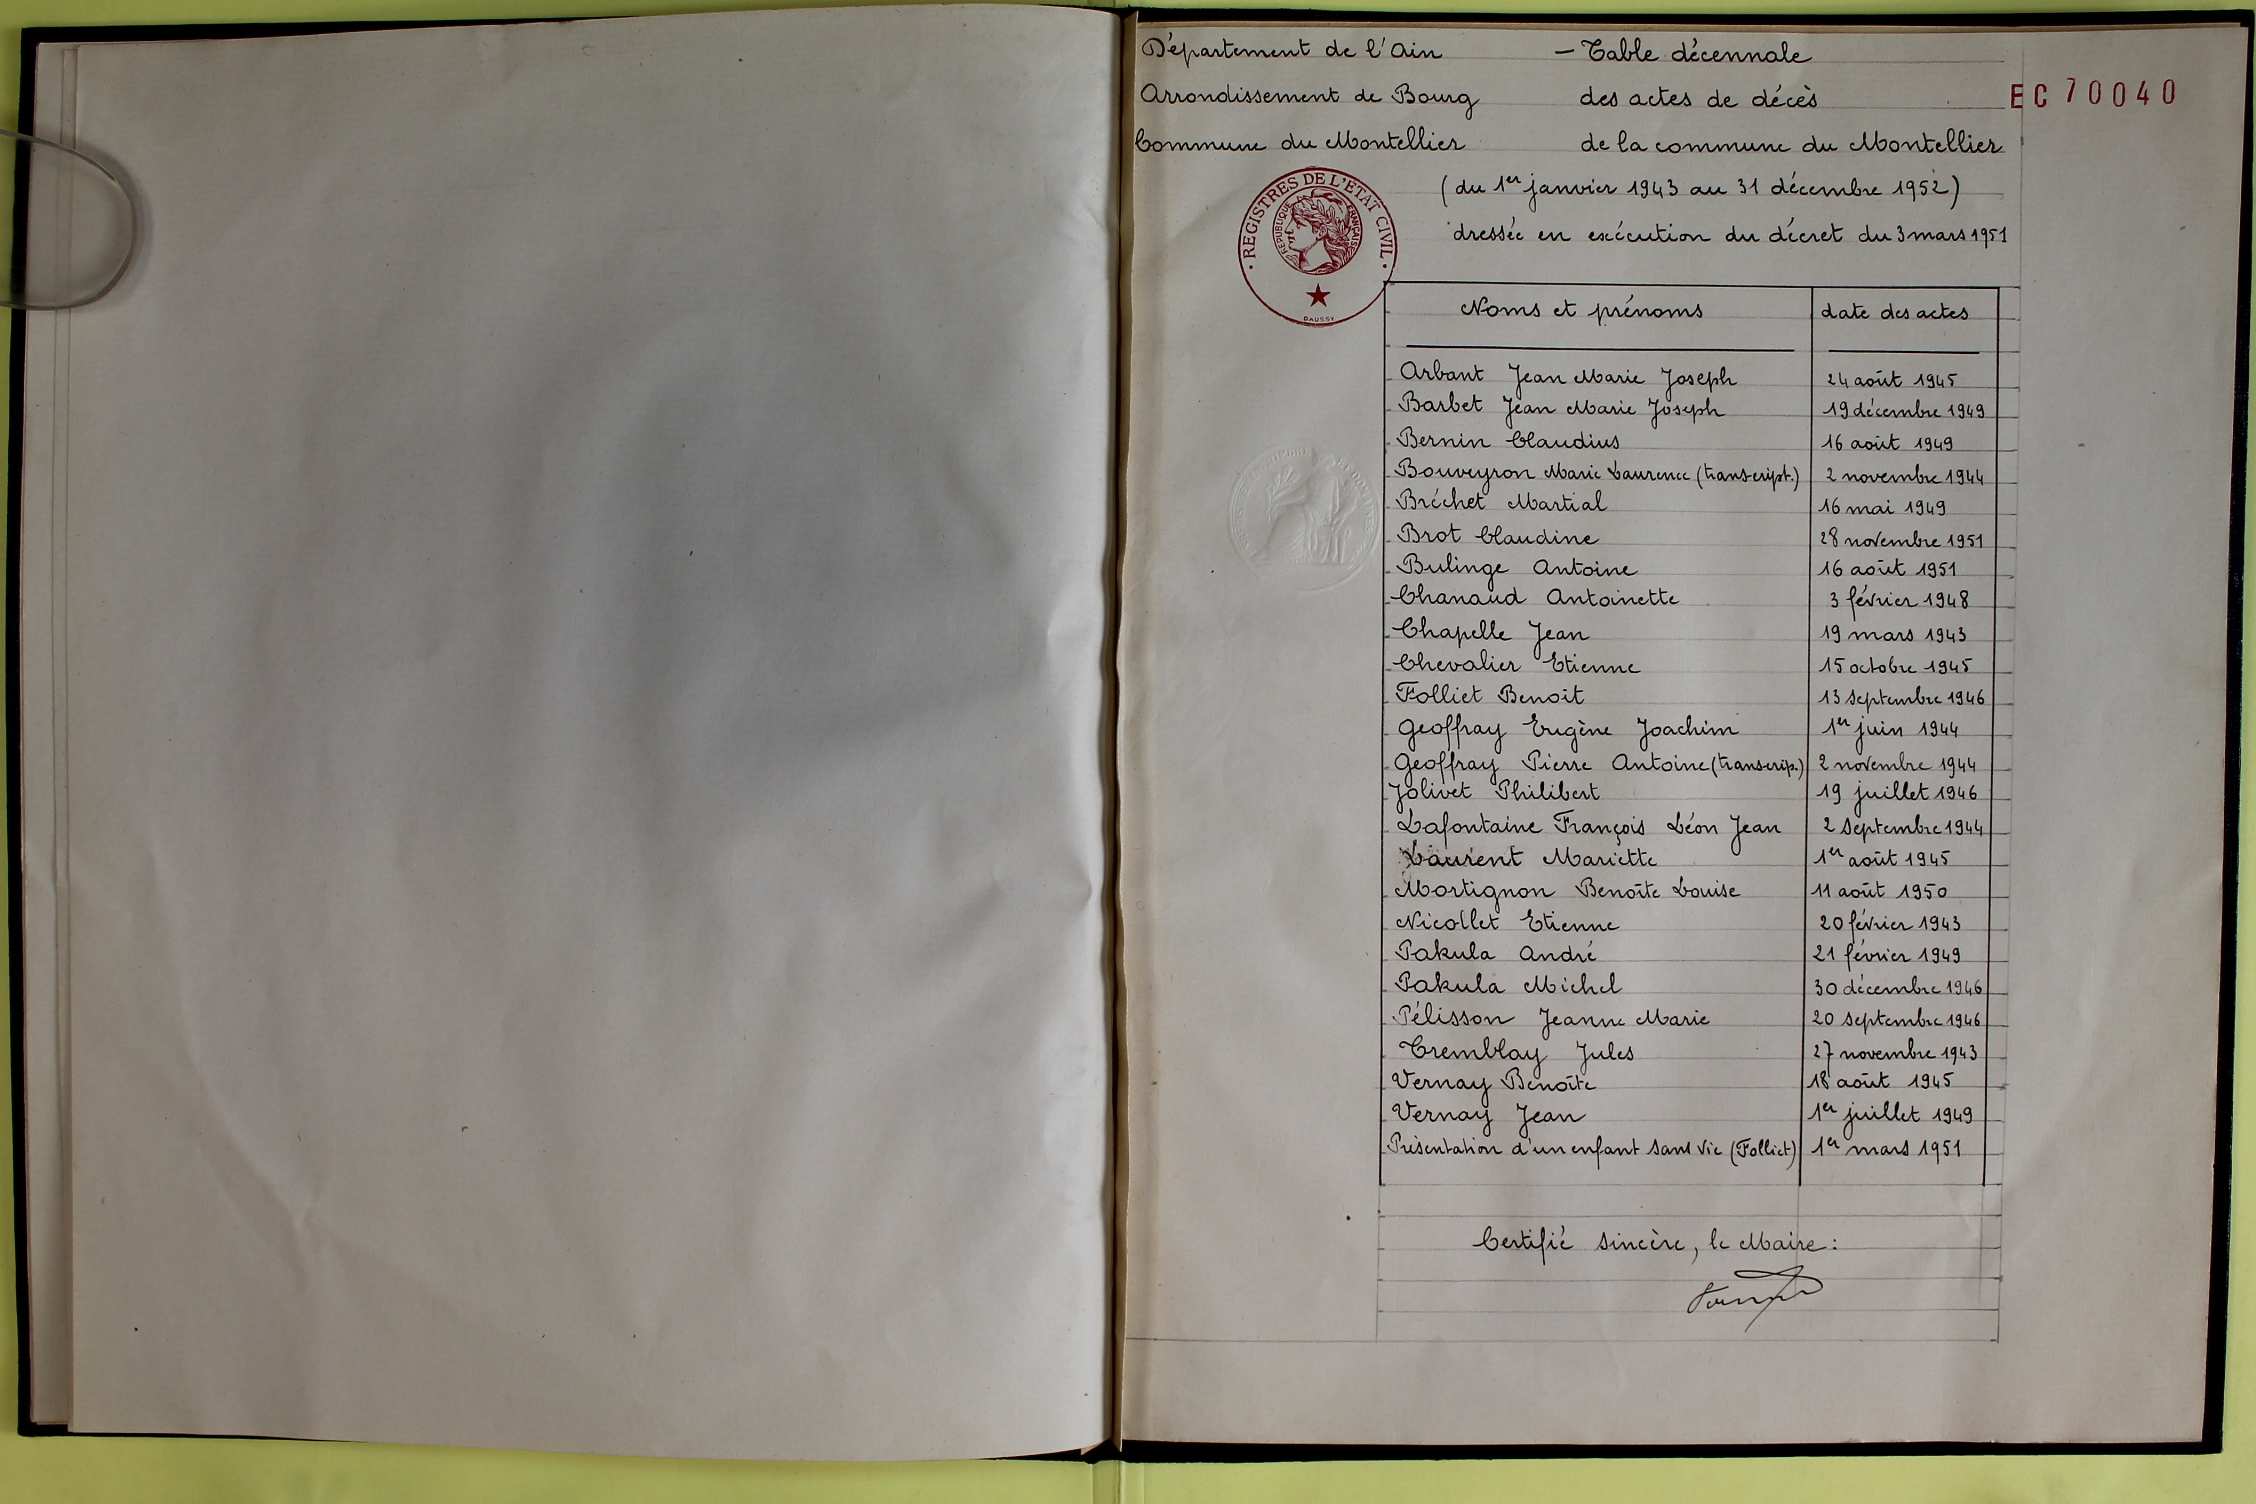 Département de l'Ain
Arrondissement de Bourg
Commune du Montellier
— Table décennale
des actes de décès
de la commune du Montellier
EC 70040
(du 1er janvier 1943 au 31 décembre 1952)
dressée en exécution du décret du 3 mars 1951
· REGISTRES DE L'ETAT CIVIL ·
REPUBLIQUE FRANÇAISE
DAUSSY
Noms et prénoms date des actes
Arbant Jean Marie Joseph 24 août 1945
Barbet Jean Marie Joseph 19 décembre 1949
Bernin Claudius 16 août 1949
Bouveyron Marie Laurence (transcript.) 2 novembre 1944
Bréchet Martial 16 mai 1949
Brot Claudine 28 novembre 1951
Bulinge Antoine 16 août 1951
Chanaud Antoinette 3 février 1948
Chapelle Jean 19 mars 1943
Chevalier Etienne 15 octobre 1945
Folliet Benoit 13 septembre 1946
Geoffray Eugène Joachim 1er juin 1944
Geoffray Pierre Antoine (transcrip.) 2 novembre 1944
Jolivet Philibert 19 juillet 1946
Lafontaine François Léon Jean 2 septembre 1944
Laurent Mariette 1er août 1945
Mortignon Benoîte Louise 11 août 1950
Nicollet Etienne 20 février 1943
Pakula André 21 février 1949
Pakula Michel 30 décembre 1946
Pélisson Jeanne Marie 20 septembre 1946
Tremblay Jules 27 novembre 1943
Vernay Benoîte 18 août 1945
Vernay Jean 1er juillet 1949
Présentation d'un enfant sans vie (Folliet) 1er mars 1951
Certifié sincère, le Maire :